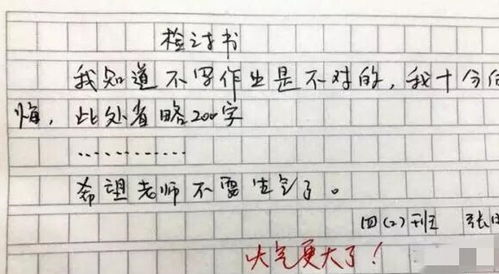 检讨书
我知道不写作业是不对的，我十分后
悔，此处省略200字
…………
希望老师不要生气了。
四(2)班 张
火气更大了！